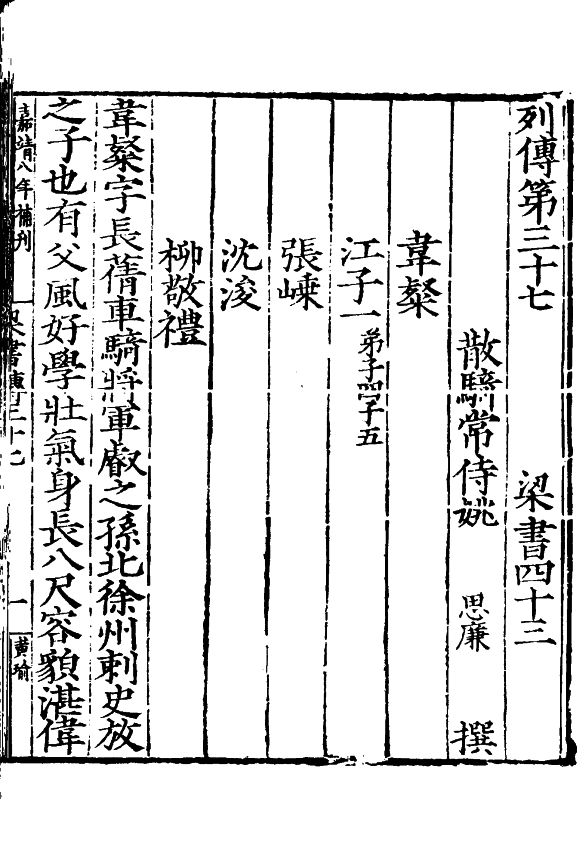 列傳第三十七 梁書四十三
散騎常侍姚 思廉 撰
韋粲
江子一 弟子四子五
張嵊
沈浚
柳敬禮
韋粲字長蒨車騎將軍叡之孫北徐州刺史放
之子也有父風好學壯氣身長八尺容貌湛偉
嘉靖八年補刊 梁書傳三十七 一 黃瑜